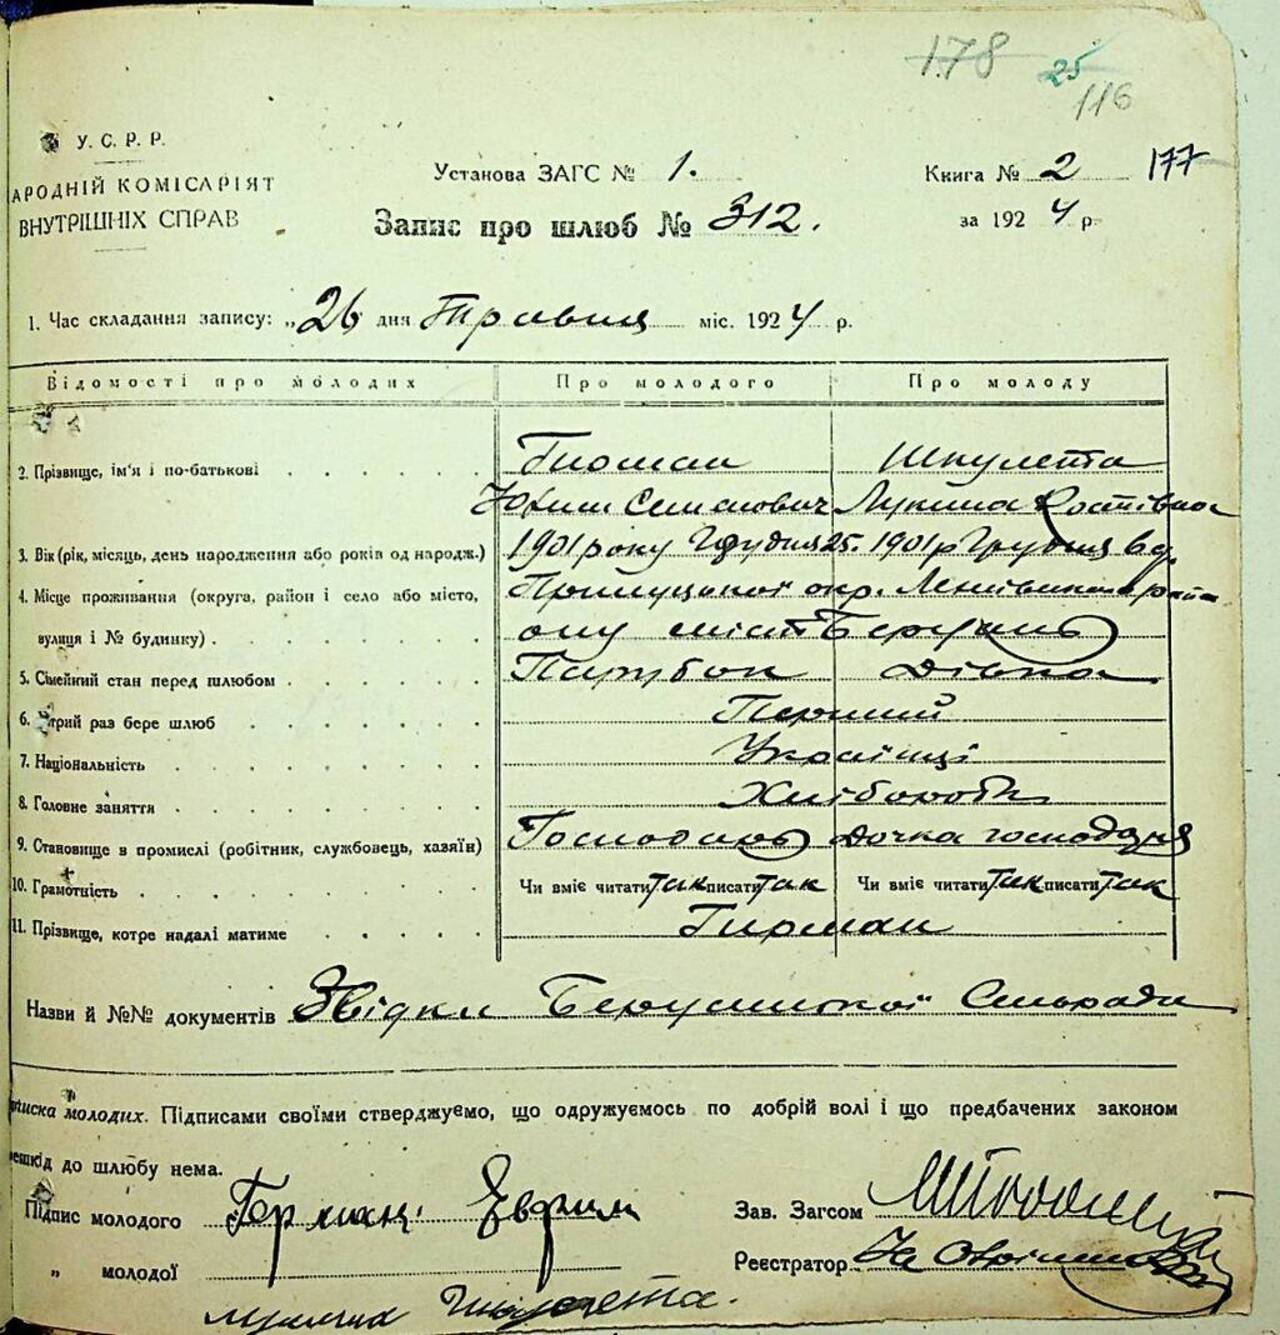 178 25
116
У. С. Р. Р.
АРОДНІЙ КОМІСАРІЯТ
ВНУТРІШНІХ СПРАВ
Установа ЗАГС № 1.
Книга № 2 177
Запис про шлюб № 312.
за 1924 р.
1. Час складання запису: „26 дня Травня міс. 1924 р.
Відомості про молодих Про молодого Про молоду
2. Прізвище, ім'я і по-батькові Гирман Шкулета
Юхим Семенович Лукина
3. Вік (рік, місяць, день народження або років од народж.) 1901 року Грудня 25. 1901 р Грудня 6 д.
4. Місце проживання (округа, район і село або місто, Прилуцької окр.
вулиця і № будинку)
5. Сімейний стан перед шлюбом Парубок Дівка
6. трий раз бере шлюб Перший
7. Національність Українці
8. Головне заняття Хлібороби
9. Становище в промислі (робітник, службовець, хазяїн) Господарь Дочка господаря
10. Грамотність Чи вміє читати так писати так Чи вміє читати так писати так
11. Прізвище, котре надалі матиме Гирман
Назви й №№ документів Звідки Сільради
писка молодих. Підписами своїми стверджуємо, що одружуємось по добрій волі і що предбачених законом
решкід до шлюбу нема.
Підпис молодого Герман Євфим Зав. Загсом
„ молодої Реєстратор
Шкулета.